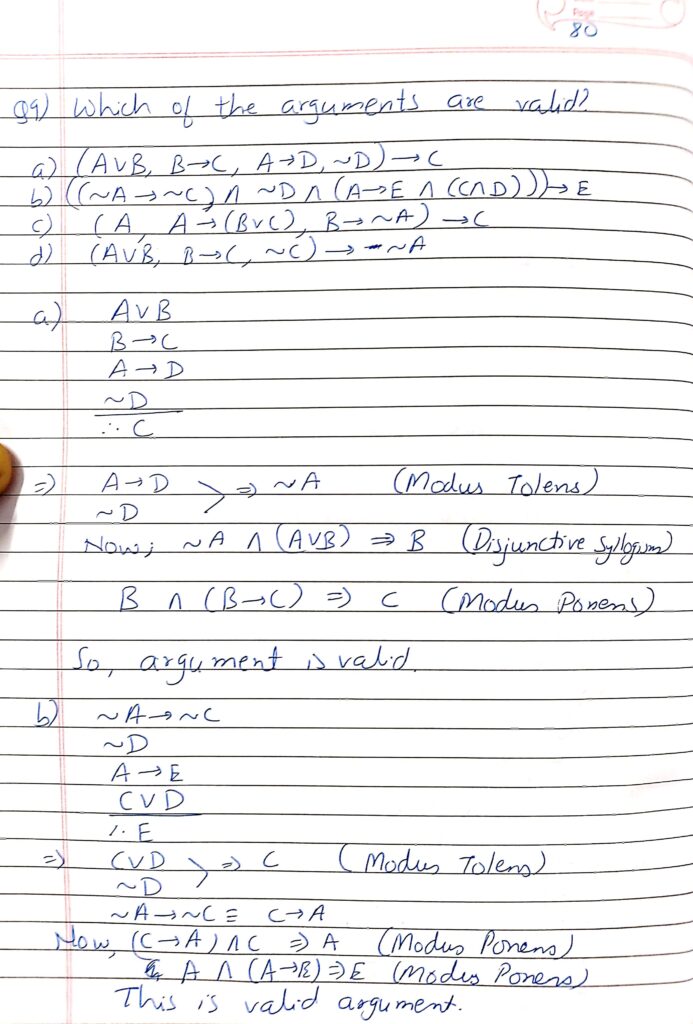 Page
80
Q9) Which of the arguments are valid?
a) (A∨B, B→C, A→D, ~D) → C
b) ((~A→~C) ∧ ~D ∧ (A→E ∧ (C∧D))) → E
c) (A, A→(B∨C), B→~A) → C
d) (A∨B, B→C, ~C) → ~A
a) A∨B
B→C
A→D
~D
∴ C
⇒) A→D
~D > ⇒ ~A (Modus Tolens)
Now; ~A ∧ (A∨B) ⇒ B (Disjunctive Syllogism)
B ∧ (B→C) ⇒ C (Modus Ponens)
So, argument is valid.
b) ~A→~C
~D
A→E
C∨D
∴ E
⇒) C∨D
~D > ⇒ C (Modus Tolens)
~A→~C ≡ C→A
Now, (C→A) ∧ C ⇒ A (Modus Ponens)
A ∧ (A→B) ⇒ E (Modus Ponens)
This is valid argument.